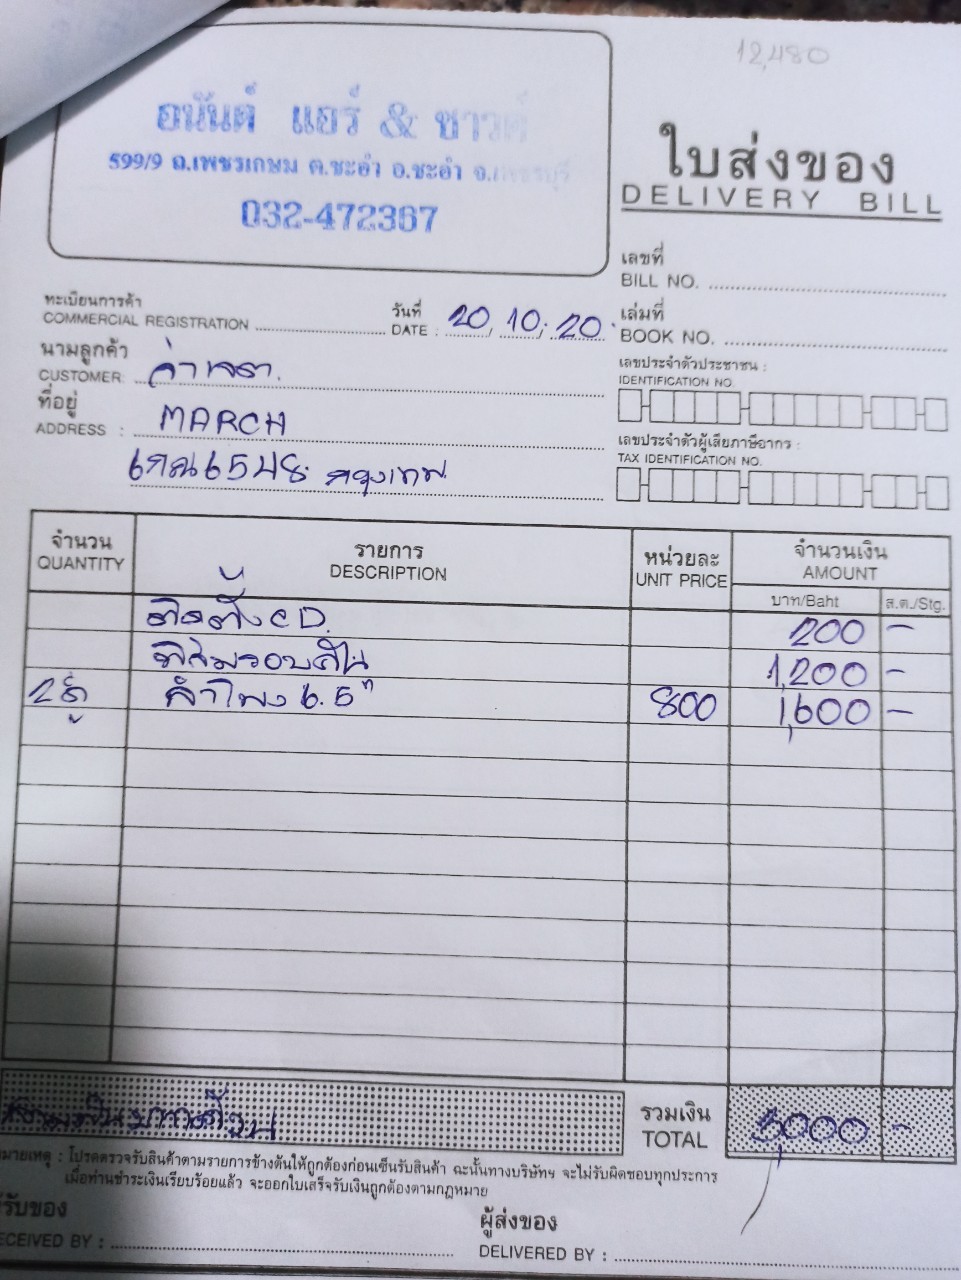 12,480
อนันต์ แอร์ & ซาวด์
599/9 ถ.เพชรเกษม ต.ชะอำ อ.ชะอำ จ.เพชรบุรี
032-472367
ใบส่งของ
DELIVERY BILL
เลขที่
BILL NO.
ทะเบียนการค้า
COMMERCIAL REGISTRATION
วันที่
DATE : 20, 10, 20
เล่มที่
BOOK NO.
นามลูกค้า
CUSTOMER:
เลขประจำตัวประชาชน :
IDENTIFICATION NO.
ที่อยู่
ADDRESS : MARCH
6กณ6548 กรุงเทพ
เลขประจำตัวผู้เสียภาษีอากร :
TAX IDENTIFICATION NO.
จำนวน
QUANTITY
รายการ
DESCRIPTION
หน่วยละ
UNIT PRICE
จำนวนเงิน
AMOUNT
บาท/Baht ส.ต./Stg.
ติดตั้ง CD. 200 -
ฟิล์มรอบคัน 1,200 -
2คู่ ลำโพง 6.5" 800 1,600 -
สามพันบาทถ้วน
รวมเงิน
TOTAL 3,000 -
หมายเหตุ : โปรดตรวจรับสินค้าตามรายการข้างต้นให้ถูกต้องก่อนเซ็นรับสินค้า ฉะนั้นทางบริษัทฯ จะไม่รับผิดชอบทุกประการ
เมื่อท่านชำระเงินเรียบร้อยแล้ว จะออกใบเสร็จรับเงินถูกต้องตามกฎหมาย
ผู้รับของ
RECEIVED BY :
ผู้ส่งของ
DELIVERED BY :